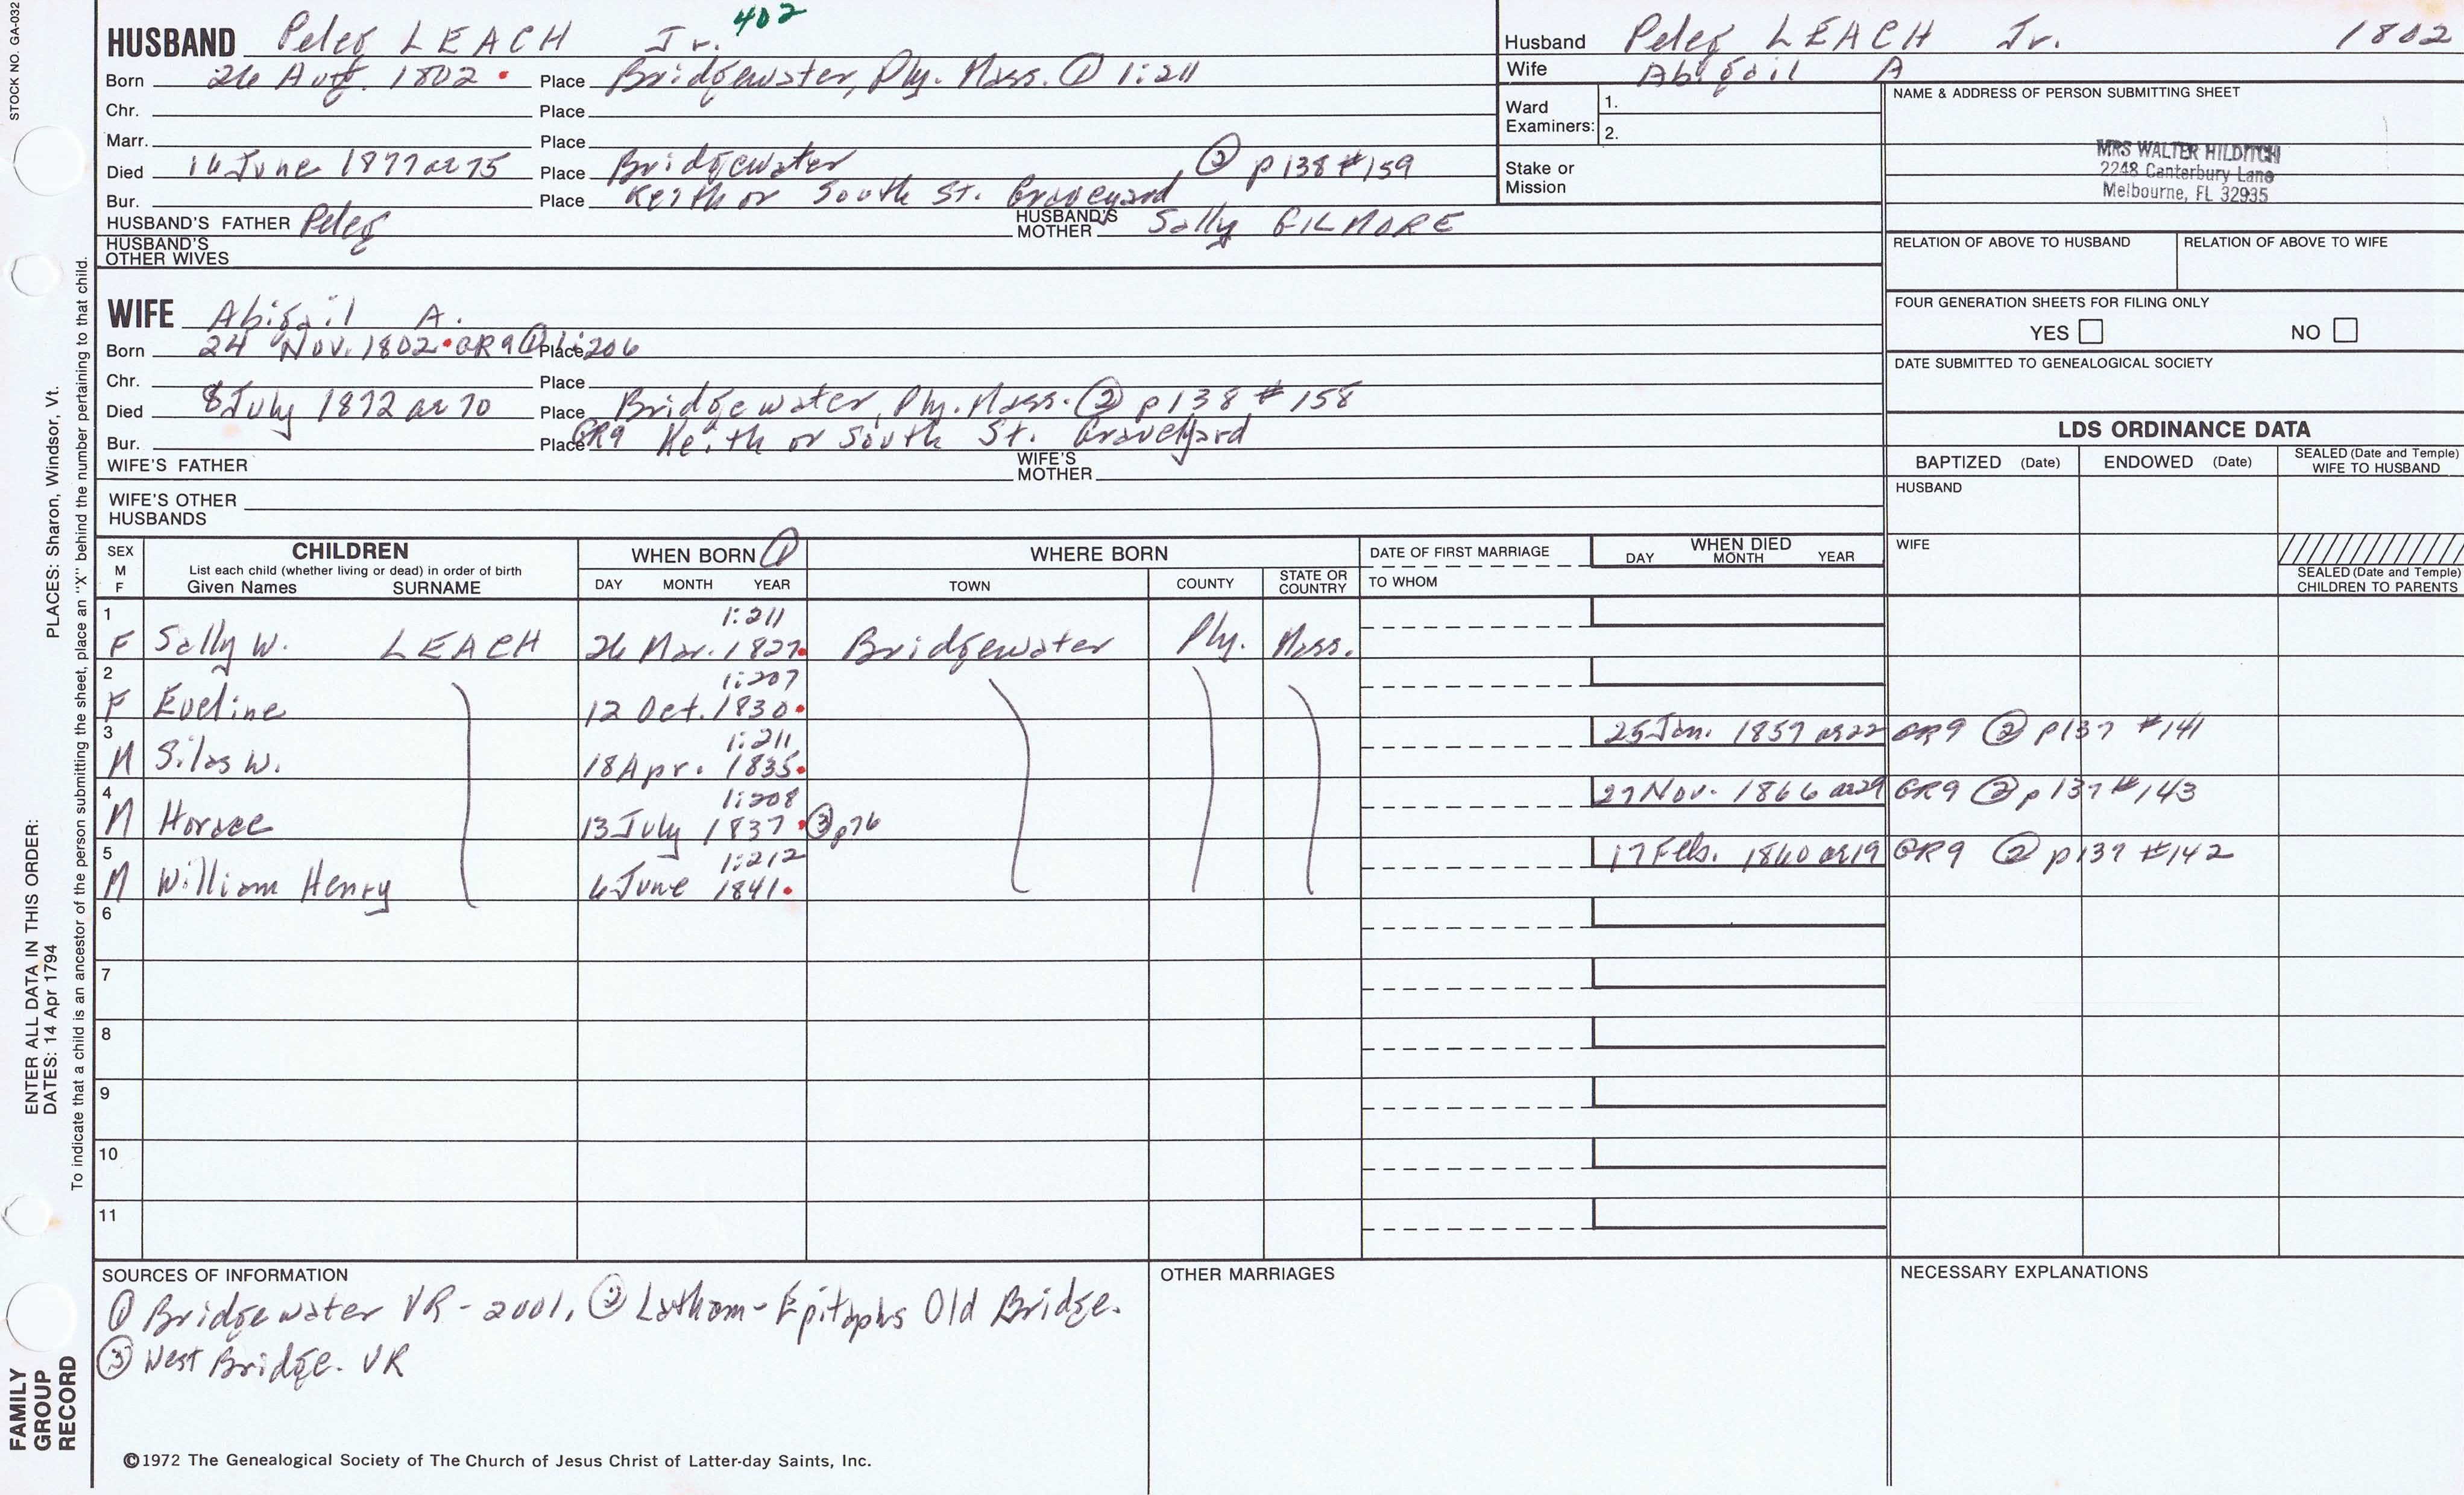 STOCK NO. GA-032
402
HUSBAND Peleg LEACH Jr.
Born 26 Aug. 1802 Place Bridgewater, Ply. Mass. ① 1:211
Chr. Place
Marr. Place
Died 16 June 1877 ae 75 Place Bridgewater, ② p138 #159
Bur. Place Keith or South St. Graveyard
HUSBAND'S FATHER Peleg HUSBAND'S MOTHER Sally GILMORE
HUSBAND'S OTHER WIVES
Husband Peleg LEACH Jr. 1802
Wife Abigail A
Ward Examiners: 1. 2.
Stake or Mission
NAME & ADDRESS OF PERSON SUBMITTING SHEET
MRS WALTER HILDITCH
2248 Canterbury Lane
Melbourne, FL 32935
RELATION OF ABOVE TO HUSBAND RELATION OF ABOVE TO WIFE
FOUR GENERATION SHEETS FOR FILING ONLY
YES NO
DATE SUBMITTED TO GENEALOGICAL SOCIETY
WIFE Abigail A.
Born 24 Nov. 1802 GR9 ① Place 1:206
Chr. Place
Died 8 July 1872 ae 70 Place Bridgewater, Ply. Mass. ② p138 #158
Bur. Place GR9 Keith or South St. Graveyard
WIFE'S FATHER WIFE'S MOTHER
WIFE'S OTHER HUSBANDS
LDS ORDINANCE DATA
BAPTIZED (Date) ENDOWED (Date) SEALED (Date and Temple) WIFE TO HUSBAND
HUSBAND
WIFE
SEALED (Date and Temple) CHILDREN TO PARENTS
SEX M F CHILDREN List each child (whether living or dead) in order of birth Given Names SURNAME
WHEN BORN ① DAY MONTH YEAR
WHERE BORN TOWN COUNTY STATE OR COUNTRY
DATE OF FIRST MARRIAGE TO WHOM
WHEN DIED DAY MONTH YEAR
1 F Sally W. LEACH 1:211 26 Mar. 1827 Bridgewater Ply. Mass.
2 F Eveline 1:207 12 Oct. 1830
3 M Silas W. 1:211 18 Apr. 1835 25 Jan. 1857 ae 22 GR9 ② p137 #141
4 M Horace 1:208 13 July 1837 ③ p76 27 Nov. 1866 ae 29 GR9 ② p137 #143
5 M William Henry 1:212 6 June 1841 17 Feb. 1860 ae 19 GR9 ② p137 #142
6
7
8
9
10
11
SOURCES OF INFORMATION
① Bridgewater VR - 2001, ② Latham - Epitaphs Old Bridge.
③ West Bridge. VR
OTHER MARRIAGES
NECESSARY EXPLANATIONS
©1972 The Genealogical Society of The Church of Jesus Christ of Latter-day Saints, Inc.
FAMILY GROUP RECORD
ENTER ALL DATA IN THIS ORDER:
DATES: 14 Apr 1794
PLACES: Sharon, Windsor, Vt.
To indicate that a child is an ancestor of the person submitting the sheet, place an "X" behind the number pertaining to that child.